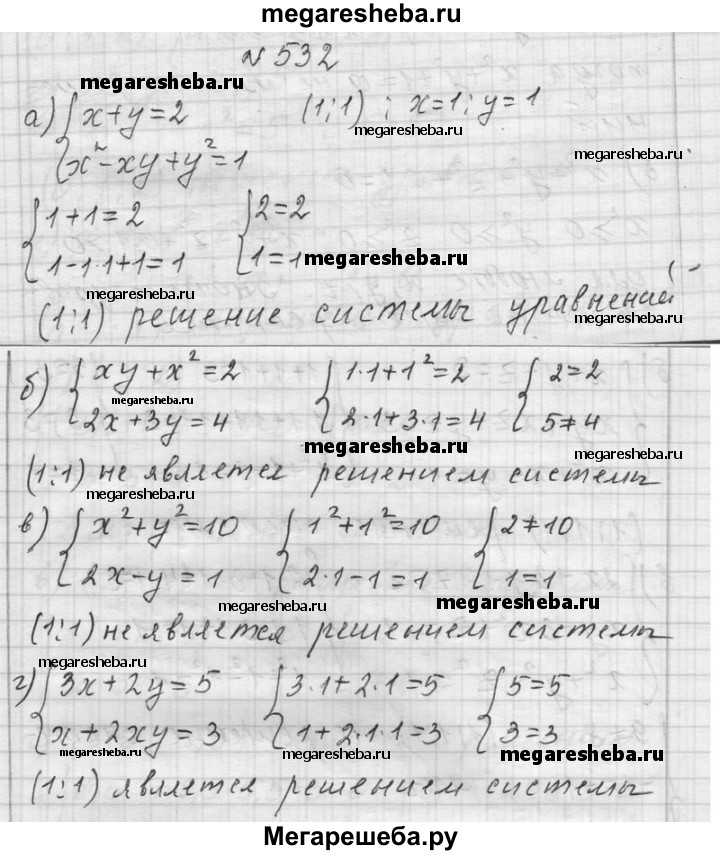 megaresheba.ru
№ 532
megaresheba.ru
а) { x+y=2 (1;1) ; x=1; y=1
megaresheba.ru
x²-xy+y²=1
megaresheba.ru
{ 1+1=2 { 2=2
1-1·1+1=1 1=1
megaresheba.ru
megaresheba.ru
(1;1) решение системы уравнений
megaresheba.ru
б) { xy+x²=2 { 1·1+1²=2 { 2=2
megaresheba.ru
2x+3y=4 2·1+3·1=4 5≠4
megaresheba.ru
megaresheba.ru
(1;1) не является решением системы
megaresheba.ru
megaresheba.ru
в) { x²+y²=10 { 1²+1²=10 { 2≠10
2x-y=1 2·1-1=1 1=1
megaresheba.ru
megaresheba.ru
(1;1) не является решением системы
megaresheba.ru
г) { 3x+2y=5 { 3·1+2·1=5 { 5=5
x+2xy=3 1+2·1·1=3 3=3
megaresheba.ru
megaresheba.ru
megaresheba.ru
(1;1) является решением системы
Мегарешеба.ру